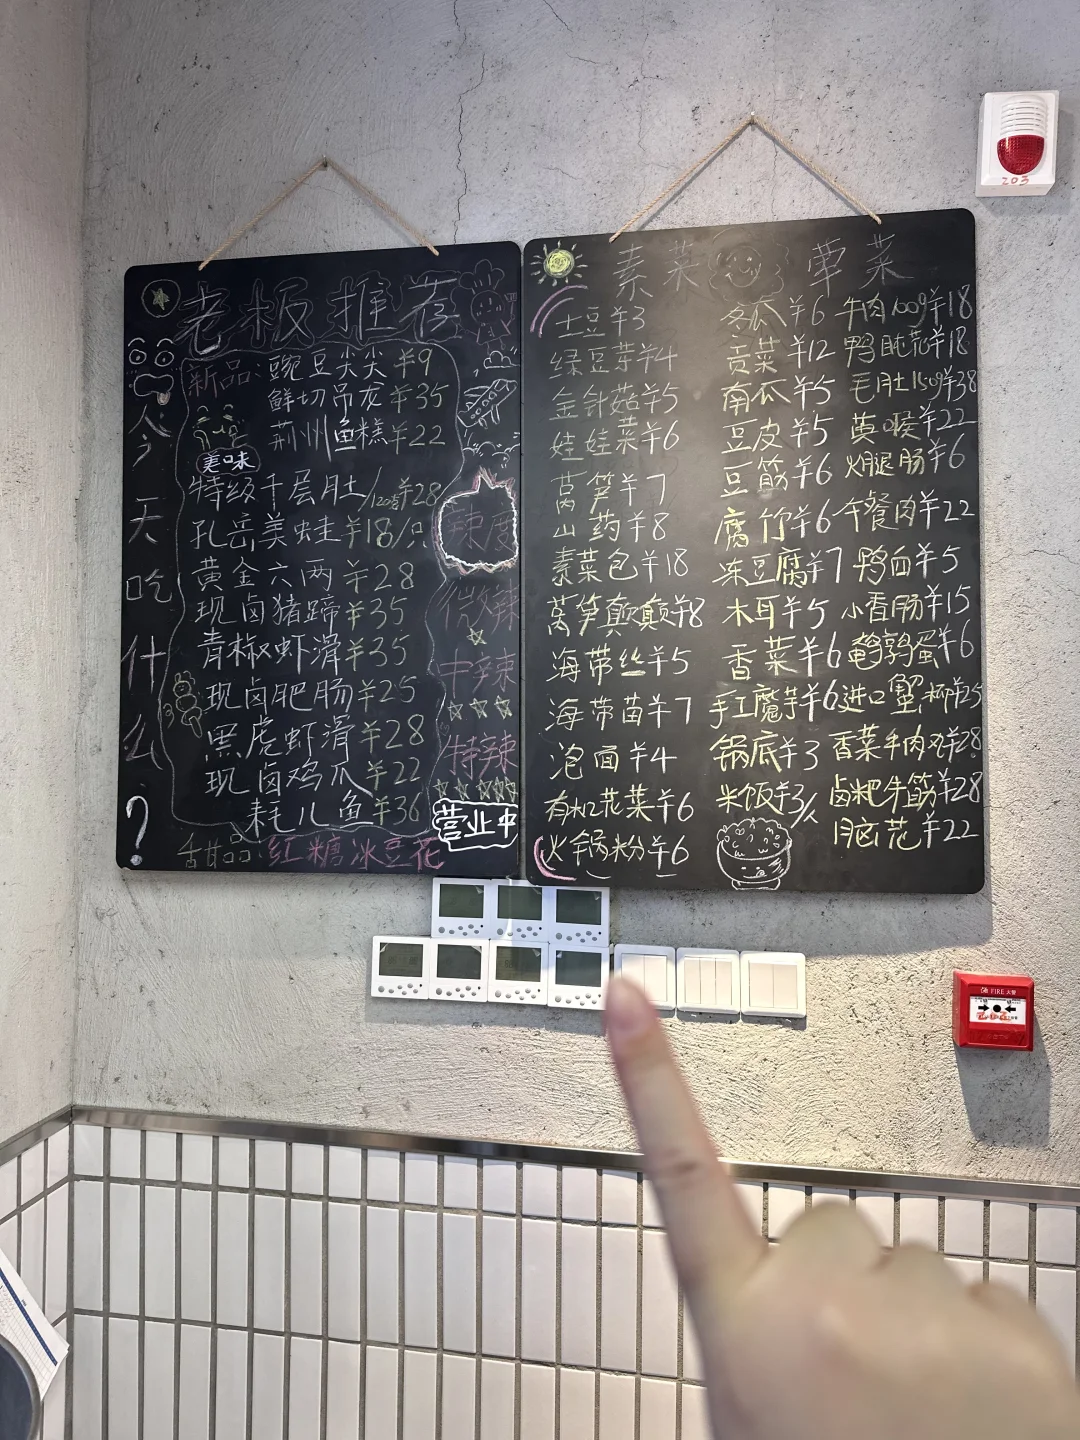 老板推荐
今天吃什么?
新品:豌豆尖尖 ¥9
鲜切吊龙 ¥35
荆州鱼糕 ¥22
美味
特级千层肚/120g ¥28
孔岳美蛙 ¥18/只
黄金六两 ¥28
现卤猪蹄 ¥35
青椒虾滑 ¥35
现卤肥肠 ¥25
黑虎虾滑 ¥28
现卤鸡爪 ¥22
耗儿鱼 ¥36
甜品:红糖冰豆花
辣度
微辣
中辣
特辣
营业中
素菜
土豆 ¥3
绿豆芽 ¥4
金针菇 ¥5
娃娃菜 ¥6
莴笋 ¥7
山药 ¥8
素菜包 ¥18
莴笋颠颠 ¥8
海带丝 ¥5
海带苗 ¥7
泡面 ¥4
有机花菜 ¥6
火锅粉 ¥6
冬瓜 ¥6
贡菜 ¥12
南瓜 ¥5
豆皮 ¥5
豆筋 ¥6
腐竹 ¥6
冻豆腐 ¥7
木耳 ¥5
香菜 ¥6
手工魔芋 ¥6
锅底 ¥3
米饭 ¥3/人
荤菜
牛肉100g ¥18
鸭肫花 ¥18
毛肚150g ¥38
黄喉 ¥22
火腿肠 ¥6
午餐肉 ¥22
鸭血 ¥5
小香肠 ¥15
鹌鹑蛋 ¥6
进口蟹柳 ¥25
香菜牛肉丸 ¥28
卤粑牛筋 ¥28
脑花 ¥22
203
FIRE 火警